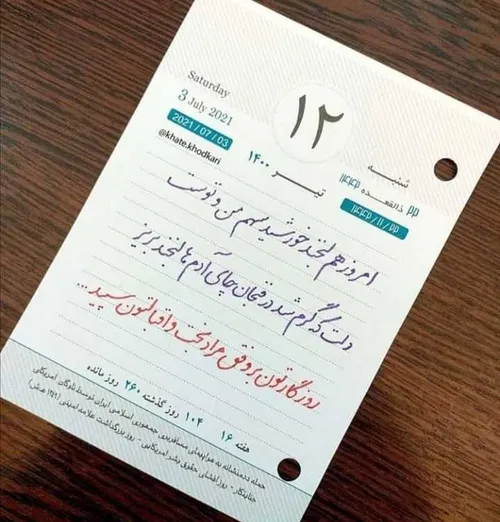 Saturday
3 July 2021
2021 / 07 / 03
@khate.khodkari
۱۲
تیر ۱۴۰۰
شنبه
۲۲ ذالقعده ۱۴۴۲
۱۴۴۲ / ۱۱ / ۲۲
امروز هم لبخند خورشید سهم من و توست
دلت که گرم شد در فنجان چای آدم ها لبخند بریز
روزگارتون بر وفق مراد بخت و اقبالتون سپید ...
هفته ۱۶ ۱۰۴ روز گذشته ۲۶۰ روز مانده
حمله ددمنشانه به هواپیمای مسافربری جمهوری اسلامی ایران توسط ناوگان آمریکای
جنایتکار - روز افشای حقوق بشر آمریکایی - روز بزرگداشت علامه امینی (۱۳۴۹ ه‍.ش)